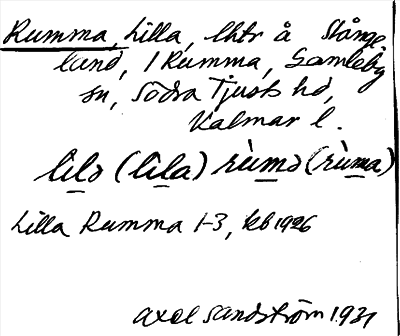 Rumma, Lilla, lhtr å Stånge
land, 1 Rumma, Gamleby
sn, Södra Tjusts hd,
Kalmar l.
lilə (lila) rùmə (rùma)
Lilla Rumma 1-3, kb 1926
Axel Sandström 1931